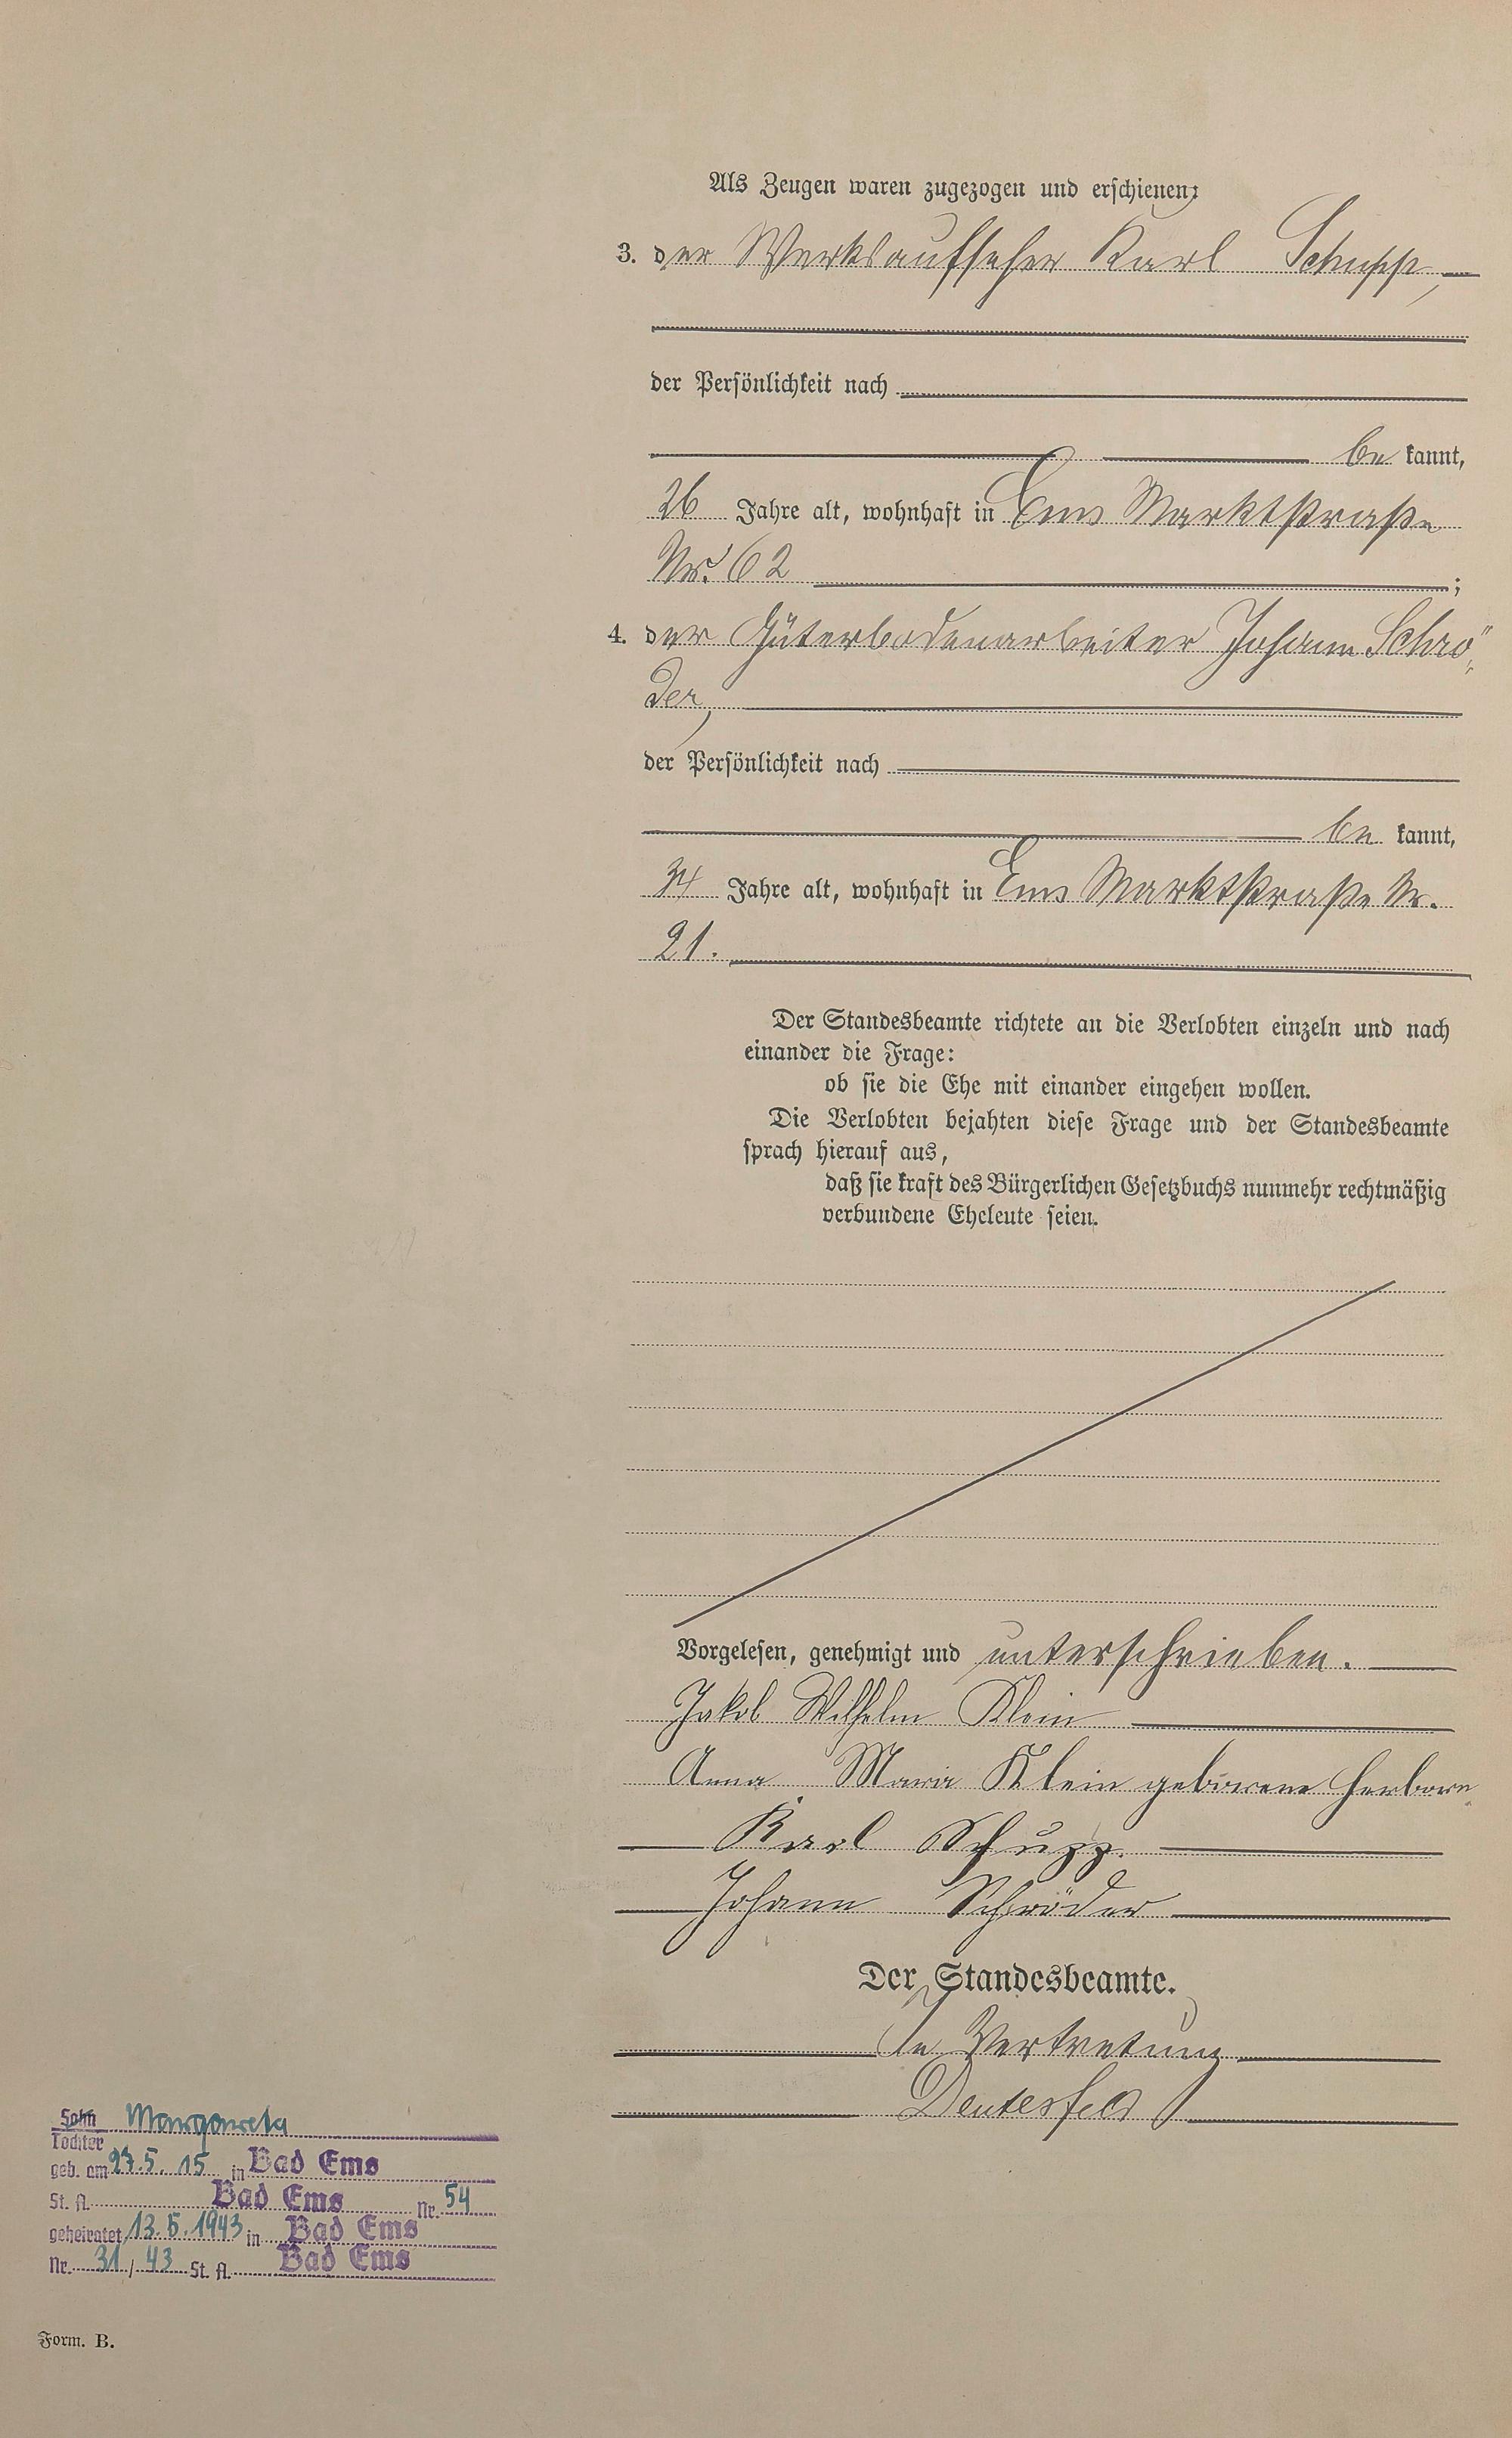 Als Zeugen waren zugezogen und erschienen:
3. der Werksaufseher Karl Schupp,
der Persönlichkeit nach
be kannt,
26 Jahre alt, wohnhaft in Ems Marktstraße
Nr. 62 ;
4. der Güterbodenarbeiter Johann Schrö„
der,
der Persönlichkeit nach
be kannt,
34 Jahre alt, wohnhaft in Ems Marktstraße Nr.
21.
Der Standesbeamte richtete an die Verlobten einzeln und nach
einander die Frage:
ob sie die Ehe mit einander eingehen wollen.
Die Verlobten bejahten diese Frage und der Standesbeamte
sprach hierauf aus,
daß sie kraft des Bürgerlichen Gesetzbuchs nunmehr rechtmäßig
verbundene Eheleute seien.
Vorgelesen, genehmigt und unterschrieben.
Jakob Wilhelm Klein
Anna Maria Klein geborene Herborn
Karl Schupp.
Johann Schröder
Der Standesbeamte.
In Vertretung
Deutesfeld
Sohn Margareta
Tochter
geb. am 27.5.15 in Bad Ems
St. A. Bad Ems Nr. 54
geheiratet 13.5.1943 in Bad Ems
Nr. 31/43 St. A. Bad Ems
Form. B.